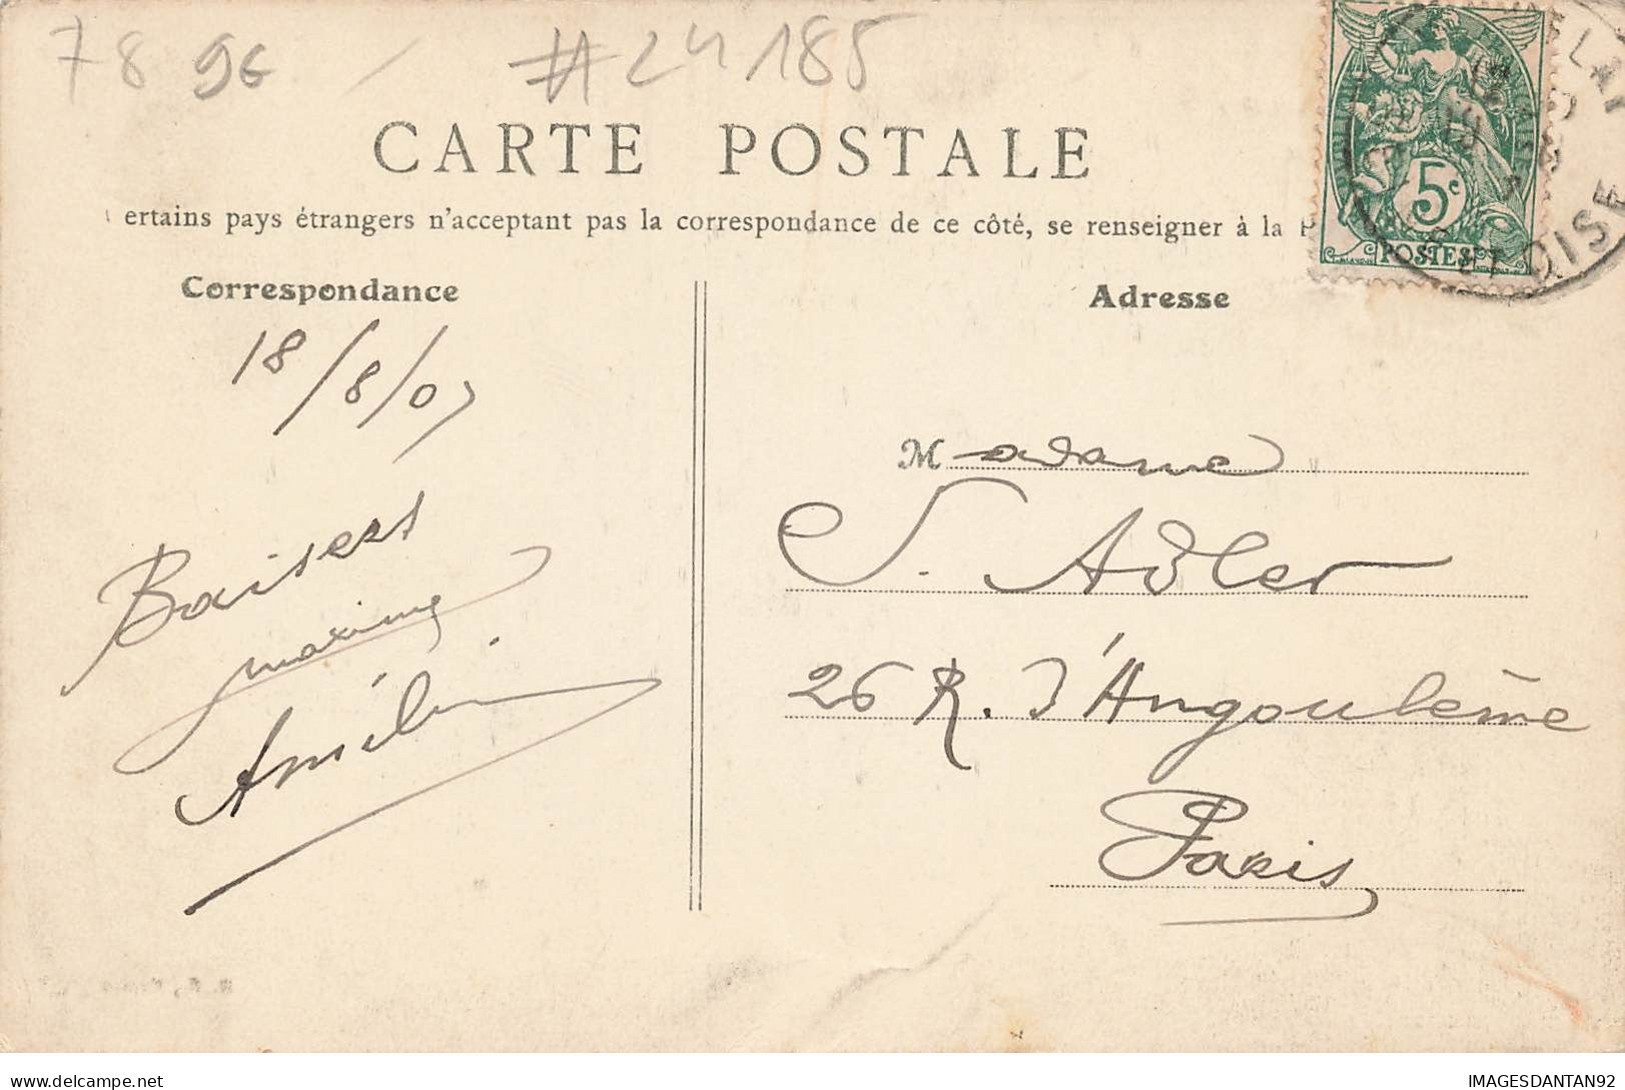 78 96 #24185
CARTE POSTALE
ertains pays étrangers n'acceptant pas la correspondance de ce côté, se renseigner à la P
Correspondance
Adresse
18/8/07
Madame
S. Adler
26 R. d'Angoulème
Paris
Baisers
maxime
Amélie
5c
POSTES
ET OISE
delcampe.net
IMAGESDANTAN92